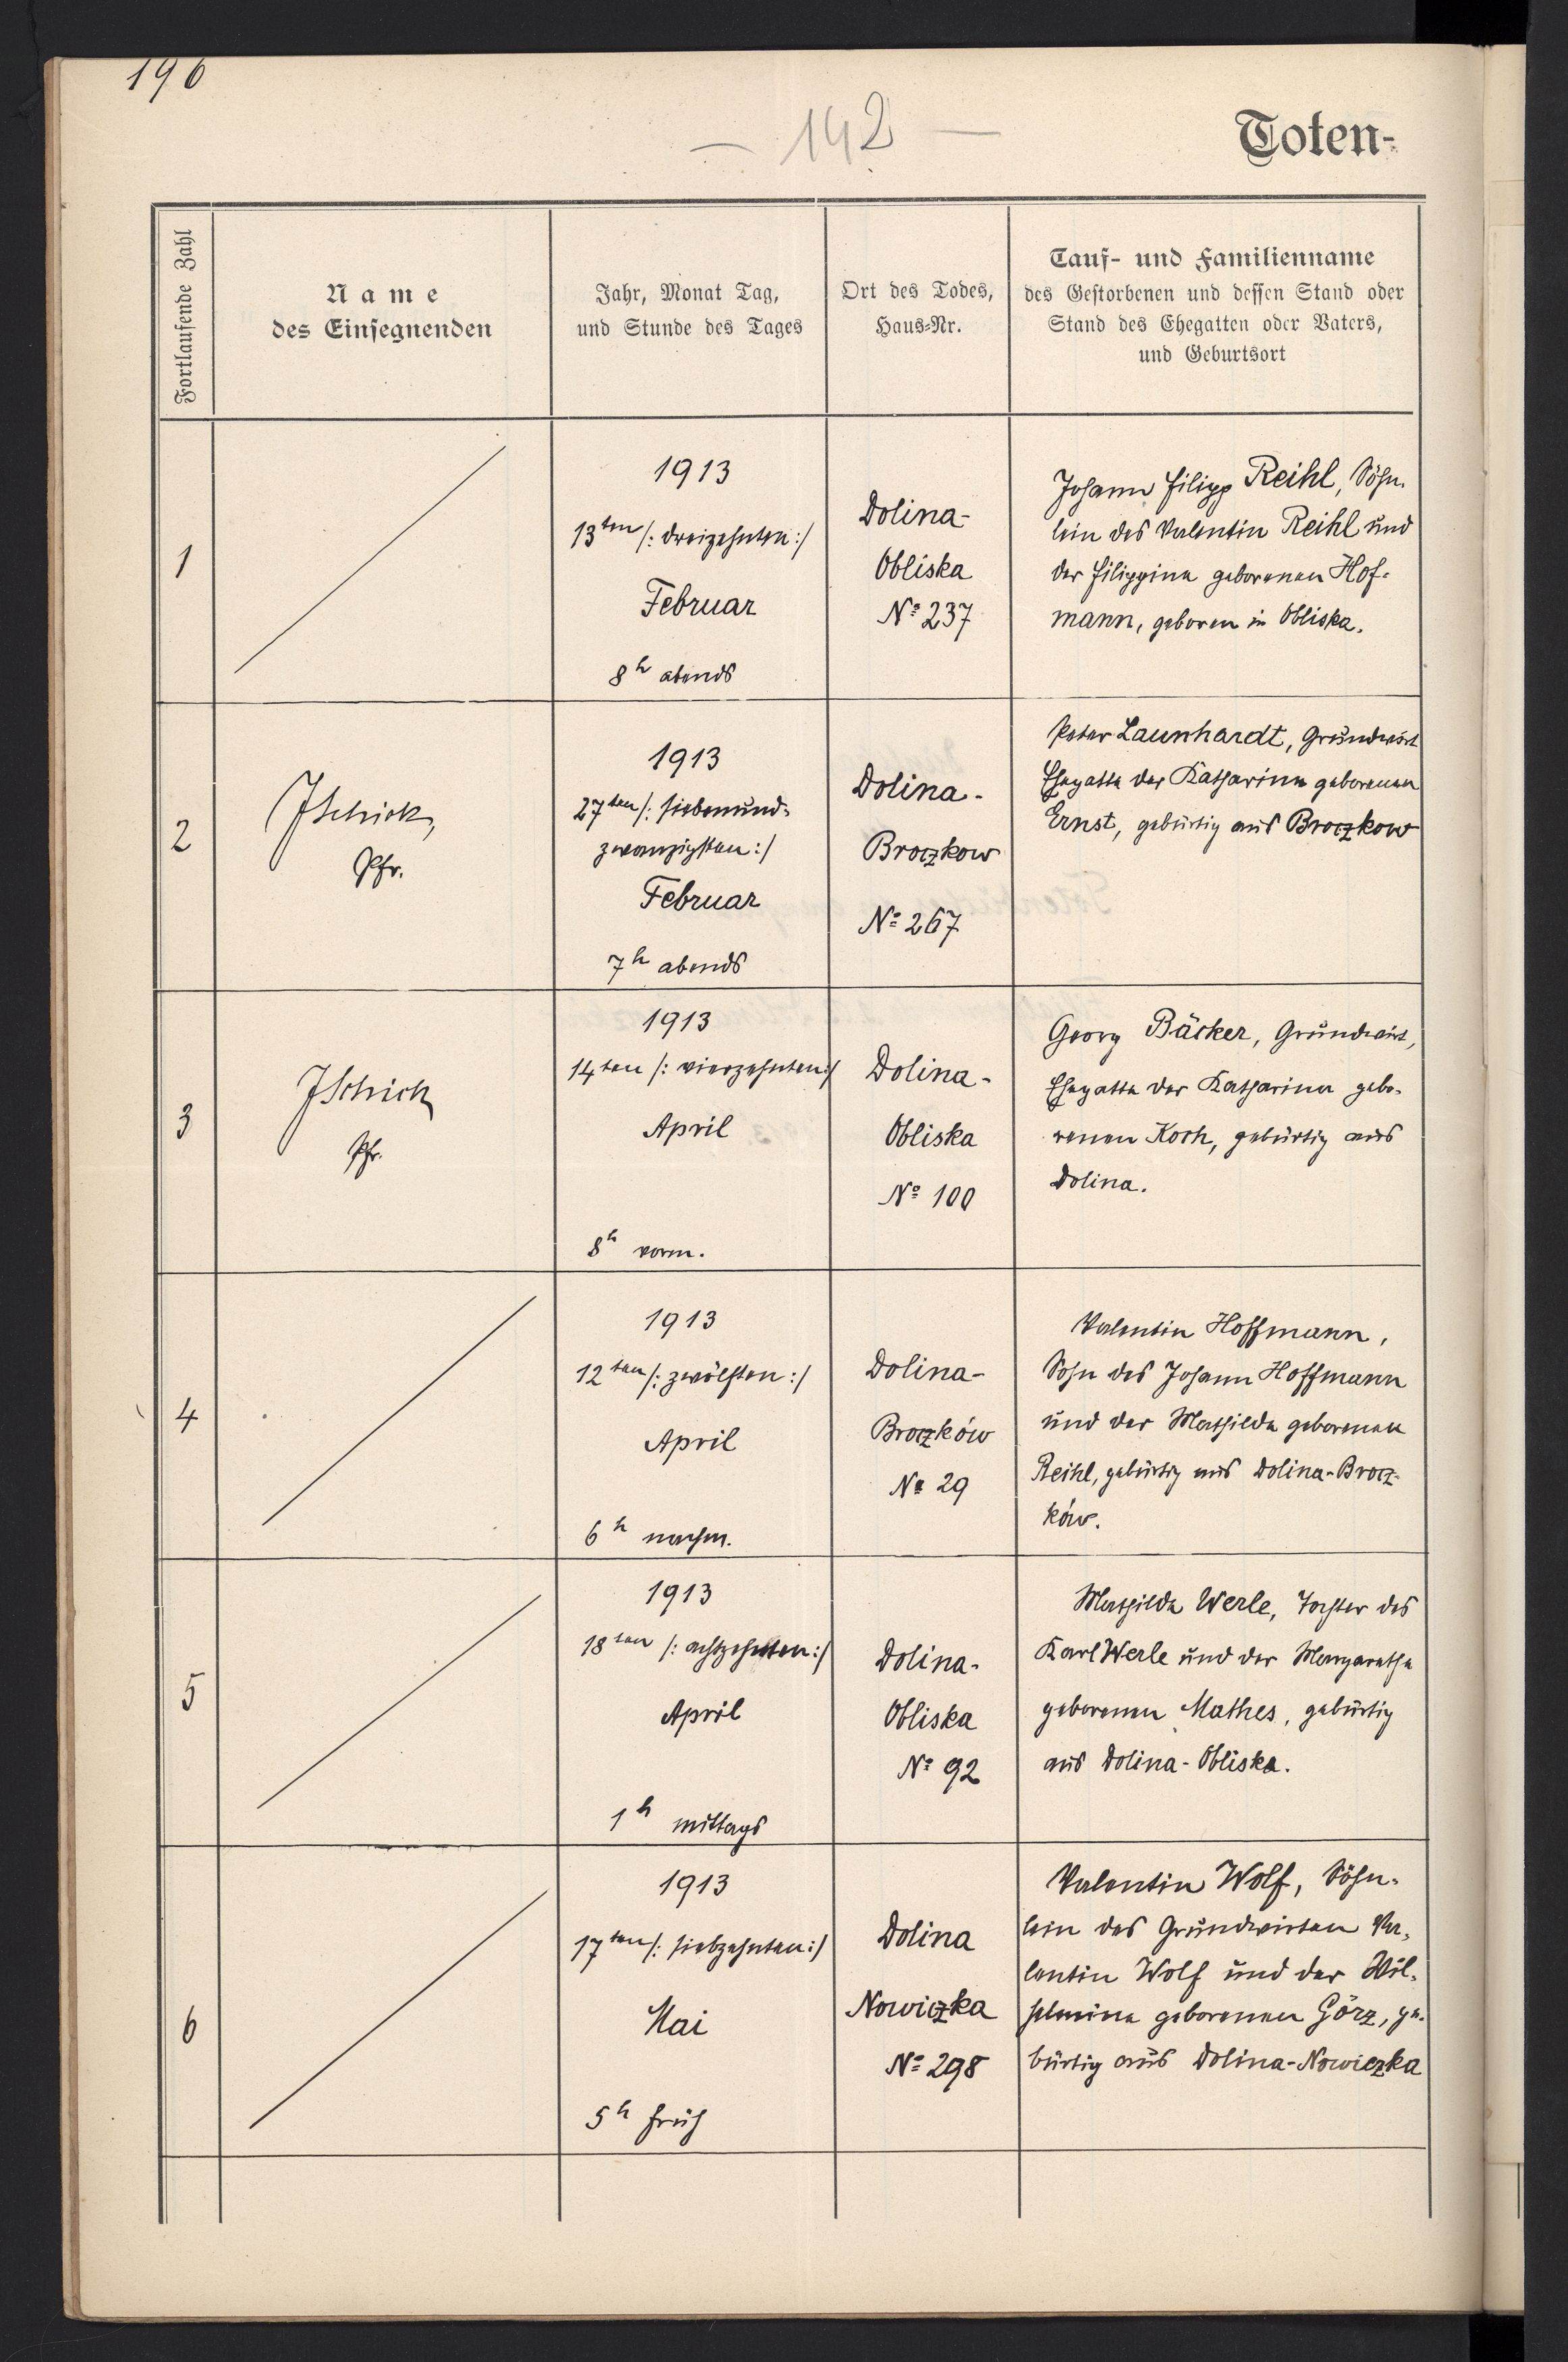 196
— 142 —
Toten-
Fortlaufende Zahl
Name
des Einsegnenden
Jahr, Monat Tag,
und Stunde des Tages
Ort des Todes,
Haus-Nr.
Tauf- und Familienname
des Gestorbenen und dessen Stand oder
Stand des Ehegatten oder Vaters,
und Geburtsort
1
1913
13ten /: dreizehnten :/
Februar
8h abends
Dolina-
Obliska
No 237
Johann Filipp Reihl, Söhn-
lein des Valentin Reihl und
der Filippine geborenen Hof-
mann, geboren in Obliska.
2
JSchick,
Pfr.
1913
27ten /: siebenund-
zwanzigsten :/
Februar
7h abends
Dolina-
Broczkow
No 267
Peter Launhardt, Grundwirt
Ehegatte der Katharina geborenen
Ernst, gebürtig aus Broczkow
3
JSchick
Pfr.
1913
14ten /: vierzehnten :/
April
8h vorm.
Dolina-
Obliska
No 100
Georg Bäcker, Grundwirt,
Ehegatte der Katharina gebo-
renen Koch, gebürtig aus
Dolina.
4
1913
12ten /: zwölften :/
April
6h nachm.
Dolina-
Broczków
No 29
Valentin Hoffmann,
Sohn des Johann Hoffmann
und der Mathilde geborenen
Reihl, gebürtig aus Dolina-Brocz-
ków.
5
1913
18ten /: achtzehnten :/
April
1h mittags
Dolina-
Obliska
No 92
Mathilde Werle, Tochter des
Karl Werle und der Margarethe
geborenen Mathes, gebürtig
aus Dolina-Obliska.
6
1913
17ten /: siebzehnten :/
Mai
5h früh
Dolina
Nowiczka
No 298
Valentin Wolf, Söhn-
lein des Grundwirten Va-
lentin Wolf und der Wil-
helmine geborenen Görz, ge-
bürtig aus Dolina-Nowiczka